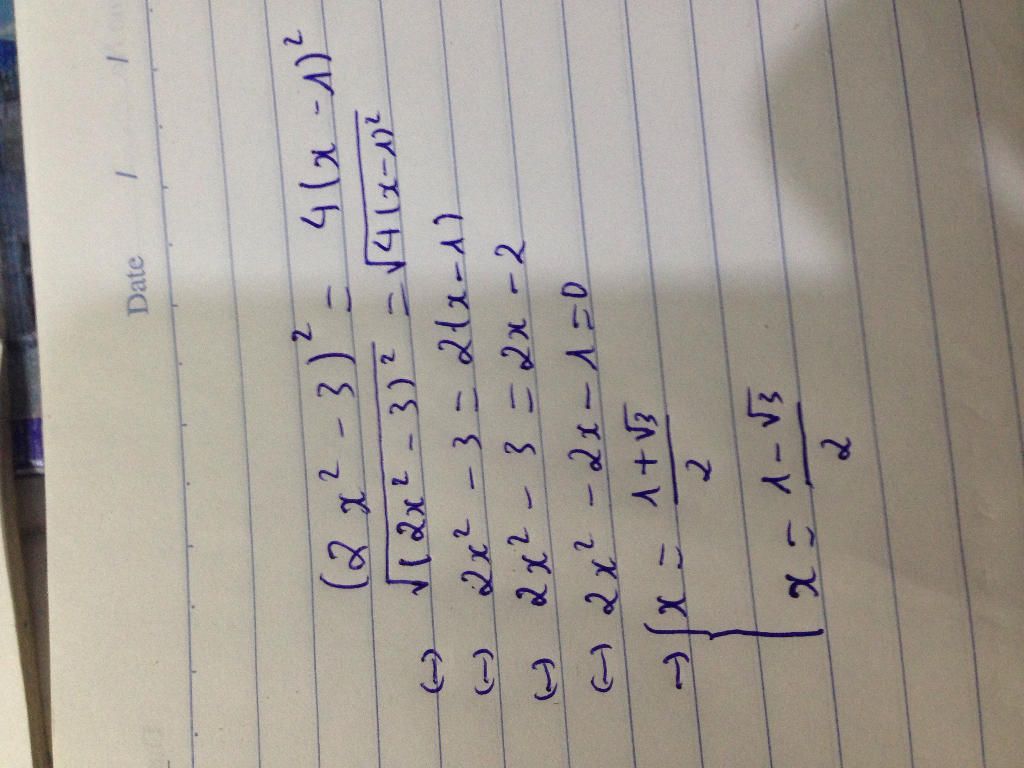 Date / /
(2x² - 3)² = 4(x - 1)²
(-) √(2x² - 3)² = √4(x-1)²
(-) 2x² - 3 = 2(x-1)
(-) 2x² - 3 = 2x - 2
(-) 2x² - 2x - 1 = 0
→ { x = 1 + √3 / 2
x = 1 - √3 / 2